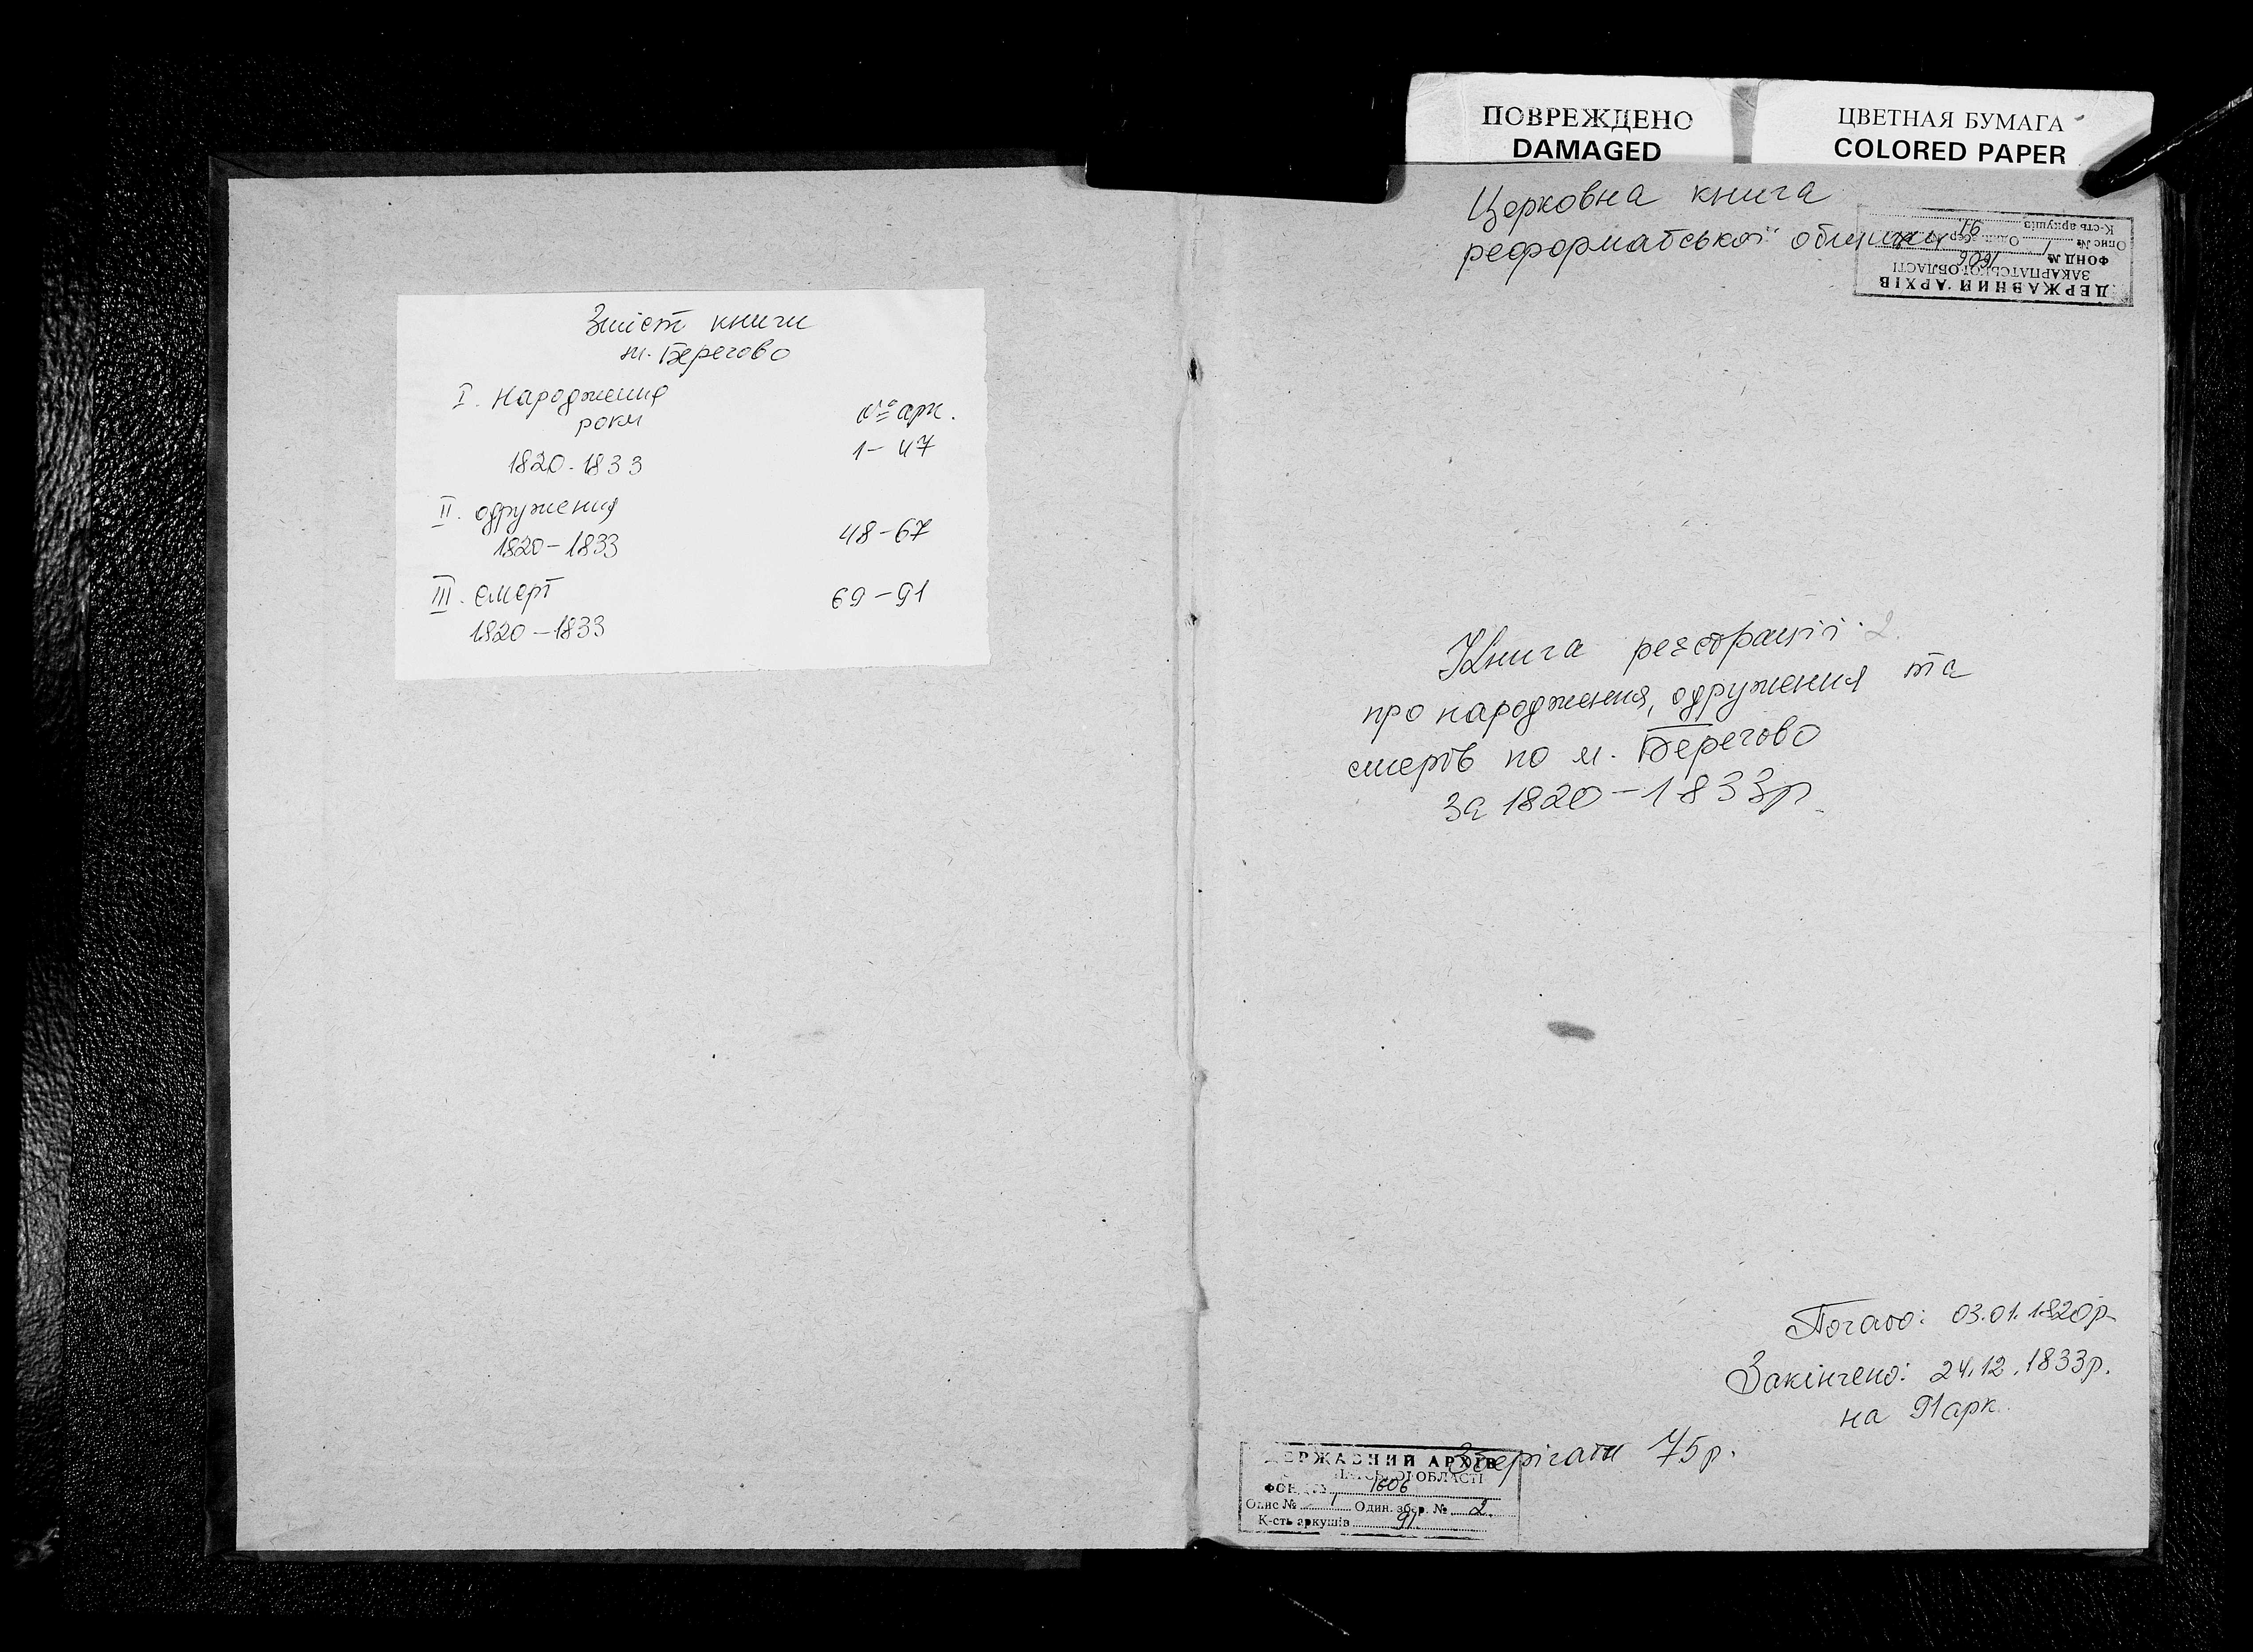 ПОВРЕЖДЕНО
DAMAGED
ЦВЕТНАЯ БУМАГА
COLORED PAPER
Зміст книги
м. Берегово
I. Народження
роки
№ арк.
1820-1833
1-47
II. одружения
1820-1833
48-67
III. смерт
1820-1833
69-91
Церковна книга
реформатської общини
ДЕРЖАВНИЙ АРХІВ
ЗАКАРПАТСЬКОЇ ОБЛАСТІ
ФОНД № 1606
Опис № 1 Один. збер.
К-сть аркушів 91
Книга реєстрації 2.
про народження, одружения та
смерть по м. Берегово
за 1820-1833р.
Почато: 03.01.1820р.
Закінчено: 24.12.1833р.
на 91арк.
Зберігати 75р.
ДЕРЖАВНИЙ АРХІВ
ОБЛАСТІ
ФОНД № 1606
Опис № 1 Один. збер. № 2.
К-сть аркушів 91